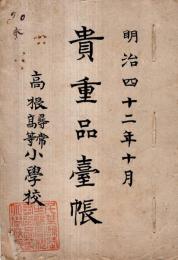 明治四十二年十月
貴重品臺帳
高根尋常高等小學校